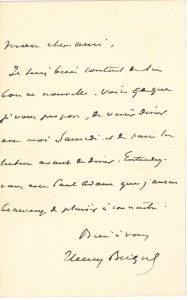 Mon cher ami,
Je suis bien content de la
bonne nouvelle. Voici ce que
je vous propose, de venir dîner
avec moi Samedi et de faire la
lecture avant de dîner. Entendez-
vous avec Paul Adam que j'aurais
beaucoup de plaisir à connaître.
Bien à vous
Henry